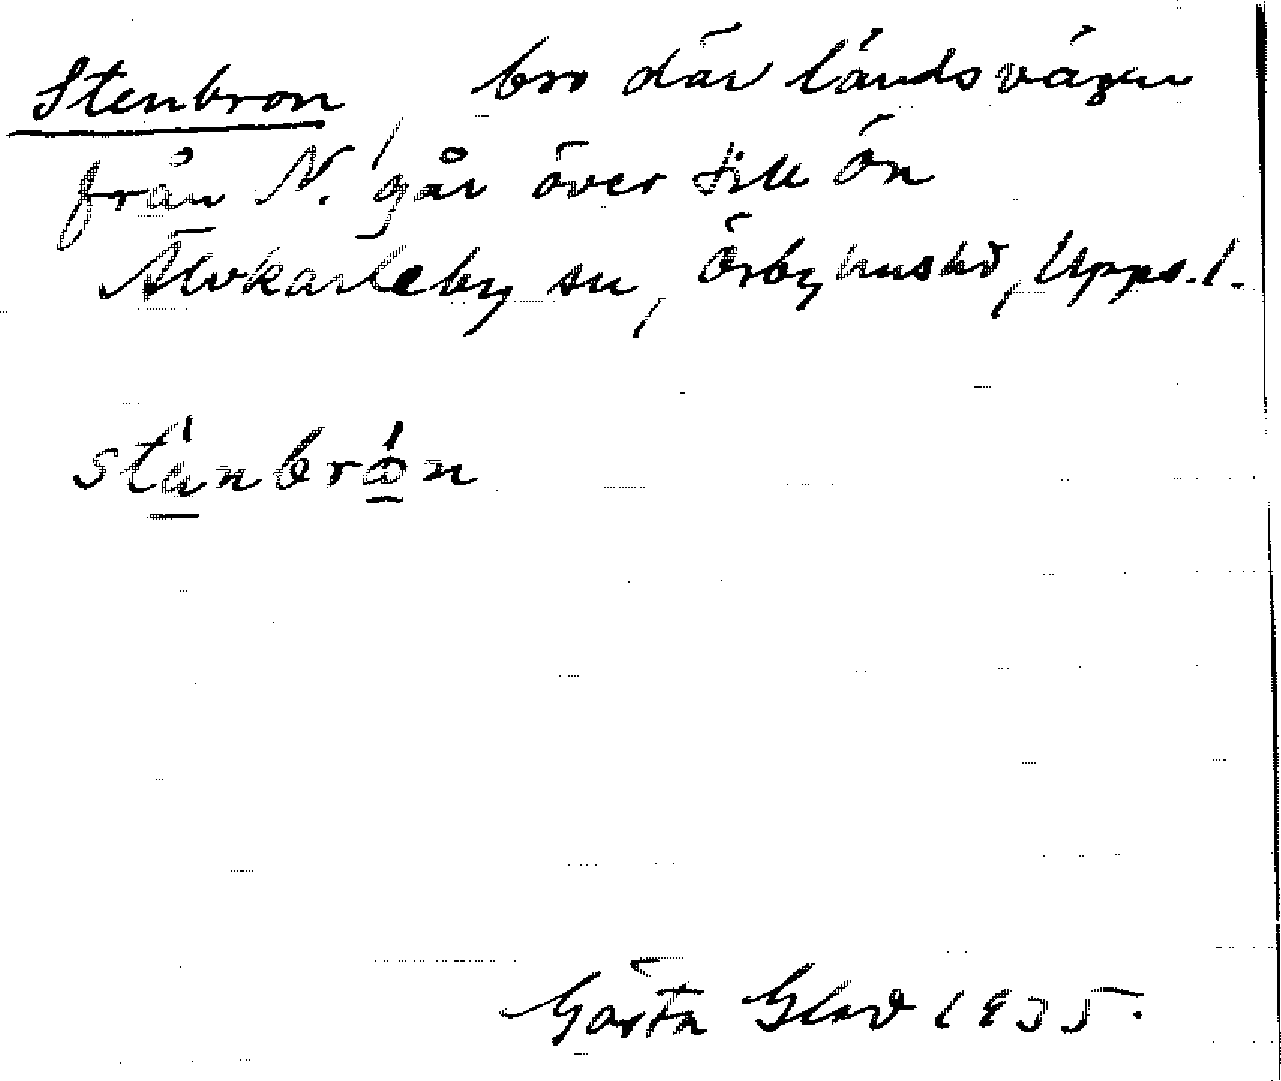 Stenbron bro där landsvägen
från N. går över till ön
Älvkarleby sn, Örbyhus hd, Upps. l.
stånbrón
Gösta Glad 1935.